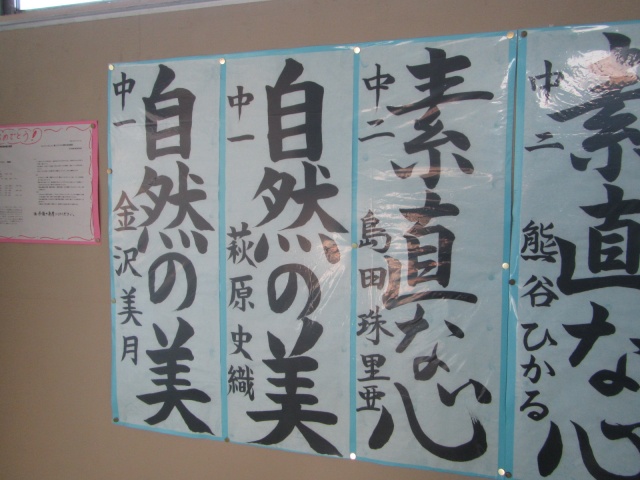 素直な心
中二
熊谷ひかる
素直な心
中二
島田珠里亜
自然の美
中一
萩原史織
自然の美
中一
金沢美月